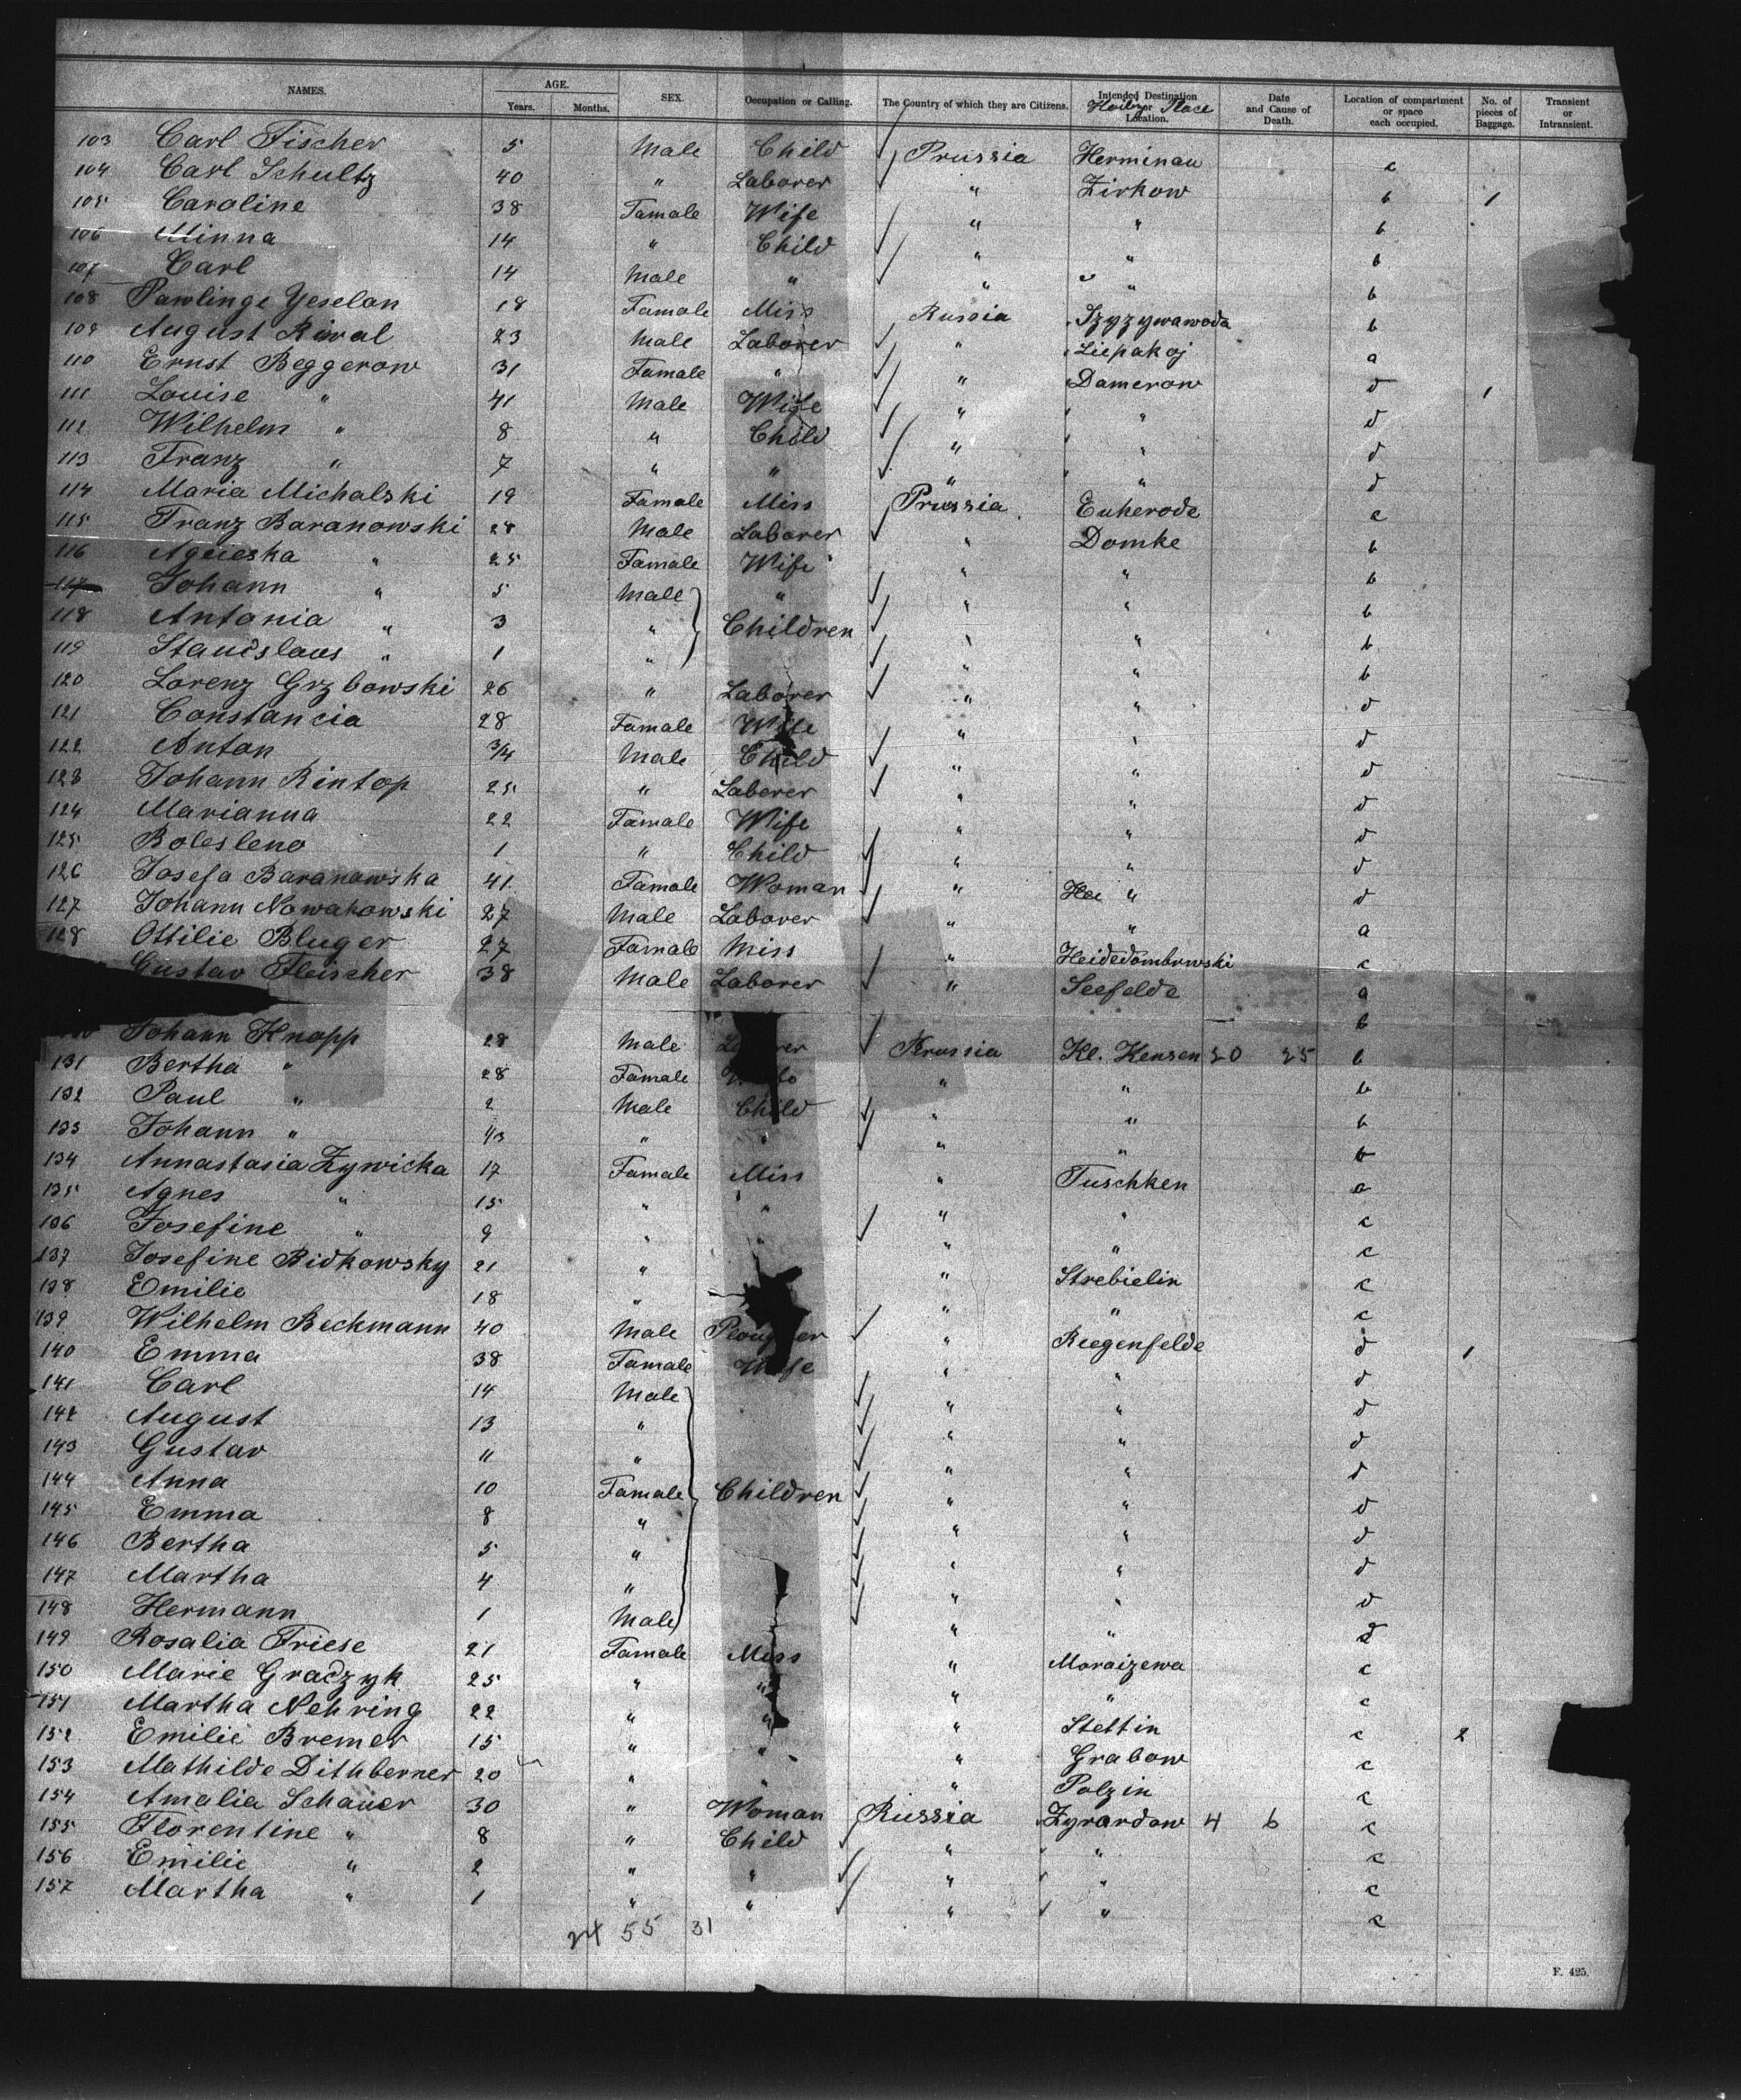 NAMES. AGE. Years. Months. SEX. Occupation or Calling. The Country of which they are Citizens. Intended Destination or Location. Heilyer Place Date and Cause of Death. Location of compartment or space each occupied. No. of pieces of Baggage. Transient or Intransient.
103 Carl Fischer 5 Male Child Prussia Herminau c
104 Carl Schultz 40 " Laborer " Zirkow b 1
105 Caroline 38 Famale Wife " " b
106 Minna 14 " Child " " b
107 Carl 14 Male " " " b
108 Pawlinge Yeselan 18 Famale Miss Russia Izyzywawoda b
109 August Rival 23 Male Laborer " Liepakoj a
110 Ernst Beggerow 31 Famale " " Damerow d 1
111 Louise " 41 Male Wife " " d
112 Wilhelm " 8 " Child " " d
113 Franz " 7 " " " " d
114 Maria Michalski 19 Famale Miss Prussia Euherode c
115 Franz Baranowski 28 Male Laborer " Domke b
116 Agnieska " 25 Famale Wife " " b
117 Johann " 5 Male " " " b
118 Antonia " 3 " Children " " b
119 Stanislaus " 1 " " " b
120 Lorenz Grzbowski 26 " Laborer " " d
121 Constancia 28 Famale Wife " " d
122 Anton 3/4 Male Child " " d
123 Johann Rintop 25 " Laborer " " d
124 Marianna 22 Famale Wife " " d
125 Bolesleno 1 " Child " " d
126 Josefa Baranowska 41 Famale Woman " Hei " d
127 Johann Nowakowski 27 Male Laborer " " a
128 Ottilie Bluger 27 Famale Miss " Heidedombrwski c
Gustav Fleischer 38 Male Laborer " Seefelde a
b
Johann Knopp 28 Male Prussia Kl. Kensen 20 25 b
131 Bertha " 28 Famale " " b
132 Paul " 2 Male Child " " b
133 Johann " 1/3 " " " " b
134 Annastasia Zywicka 17 Famale Miss " Tuschken c
135 Agnes " 15 " " " " c
136 Josefine " 9 " " " c
137 Josefine Bidkowsky 21 " " Strebielin c
138 Emilie 18 " " " c
139 Wilhelm Beckmann 40 Male " Reegenfelde d 1
140 Emma 38 Famale Wife " " d
141 Carl 14 Male " " d
142 August 13 " " " d
143 Gustav 11 " " " d
144 Anna 10 Famale Children " " d
145 Emma 8 " " " d
146 Bertha 5 " " " d
147 Martha 4 " " " d
148 Hermann 1 Male " " d
149 Rosalia Friese 21 Famale Miss " Moraizewa c
150 Marie Gradzyk 25 " " " " c
151 Martha Nehring 22 " " " Stettin c 2
152 Emilie Bremer 15 " " " Grabow c
153 Mathilde Dithberner 20 " " " Polzin c
154 Amalia Schauer 30 " Woman Russia Zyrardow 4 6 c
155 Florentine " 8 " Child " " c
156 Emilie " 2 " " " " c
157 Martha " 1 " " " " c
24 55 31
F. 425.